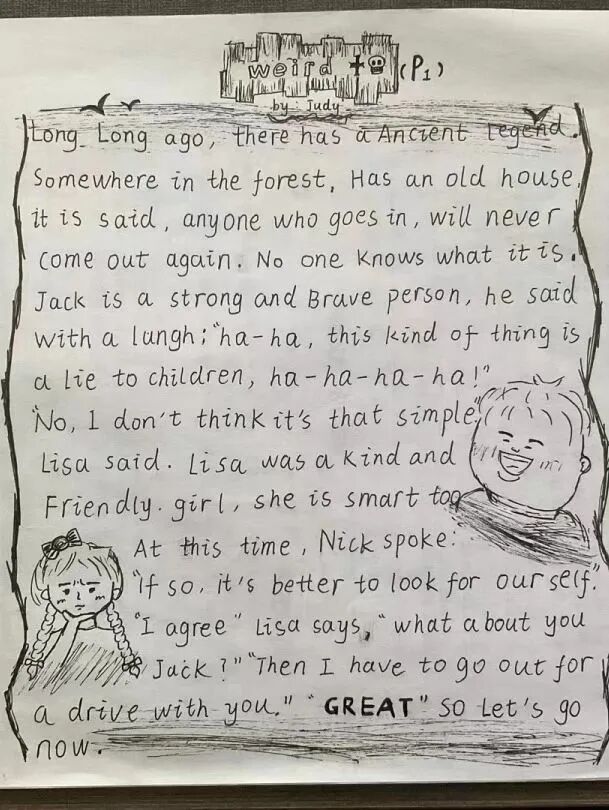 weird (P1)
by: Judy
Long Long ago, there has a Ancient legend.
Somewhere in the forest, Has an old house,
it is said, anyone who goes in, will never
come out again. No one knows what it is.
Jack is a strong and Brave person, he said
with a lungh: "ha-ha, this kind of thing is
a lie to children, ha-ha-ha-ha!"
"No, I don't think it's that simple."
Lisa said. Lisa was a kind and
Friendly. girl, she is smart too
At this time, Nick spoke:
"If so, it's better to look for our self."
"I agree" Lisa says, "what about you
Jack?" "Then I have to go out for
a drive with you." "GREAT" So Let's go
now.